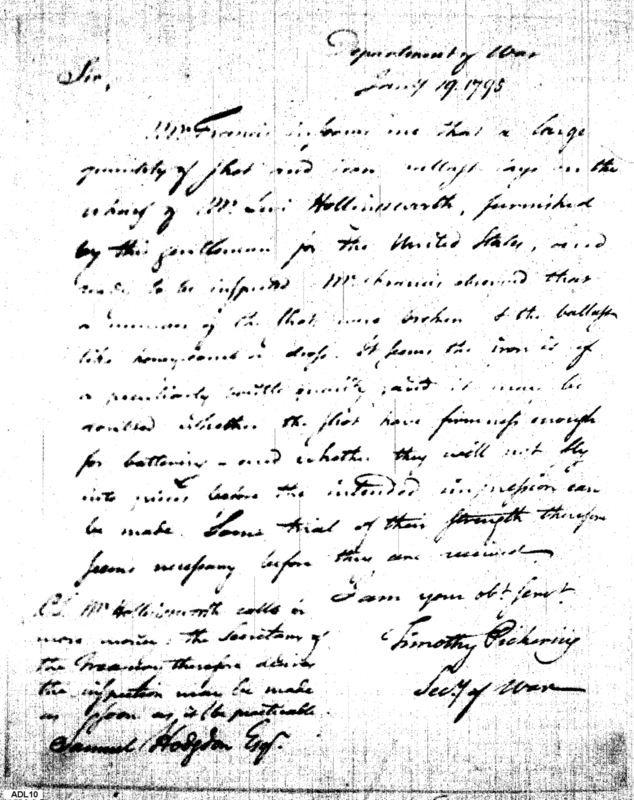 Department of War
Jany 19. 1795
Sir,
Mr Francis informs me that a large
quantity of shot and iron ballast lays on the
wharf of Mr. Levi Hollinsworth, furnished
by this gentleman for the United States, and
ready to be inspected. Mr Francis observed that
a number of the shot were broken & the ballast
like honeycomb or dross. It seems the iron is of
a peculiarly brittle quality, and it may be
doubted whether the shot have firmness enough
for battering - and whether they will not fly
into pieces before the intended impression can
be made. Some trial of their strength therefore
seems necessary before they are received.
I am your obt servt.
Timothy Pickering
Secy of War
P.S. Mr Hollinsworth calls for
more monies: the Secretary of
the Treasury therefore desires
the inspection may be made
as soon as it be practicable.
Samuel Hodgdon Esqr.
ADL10